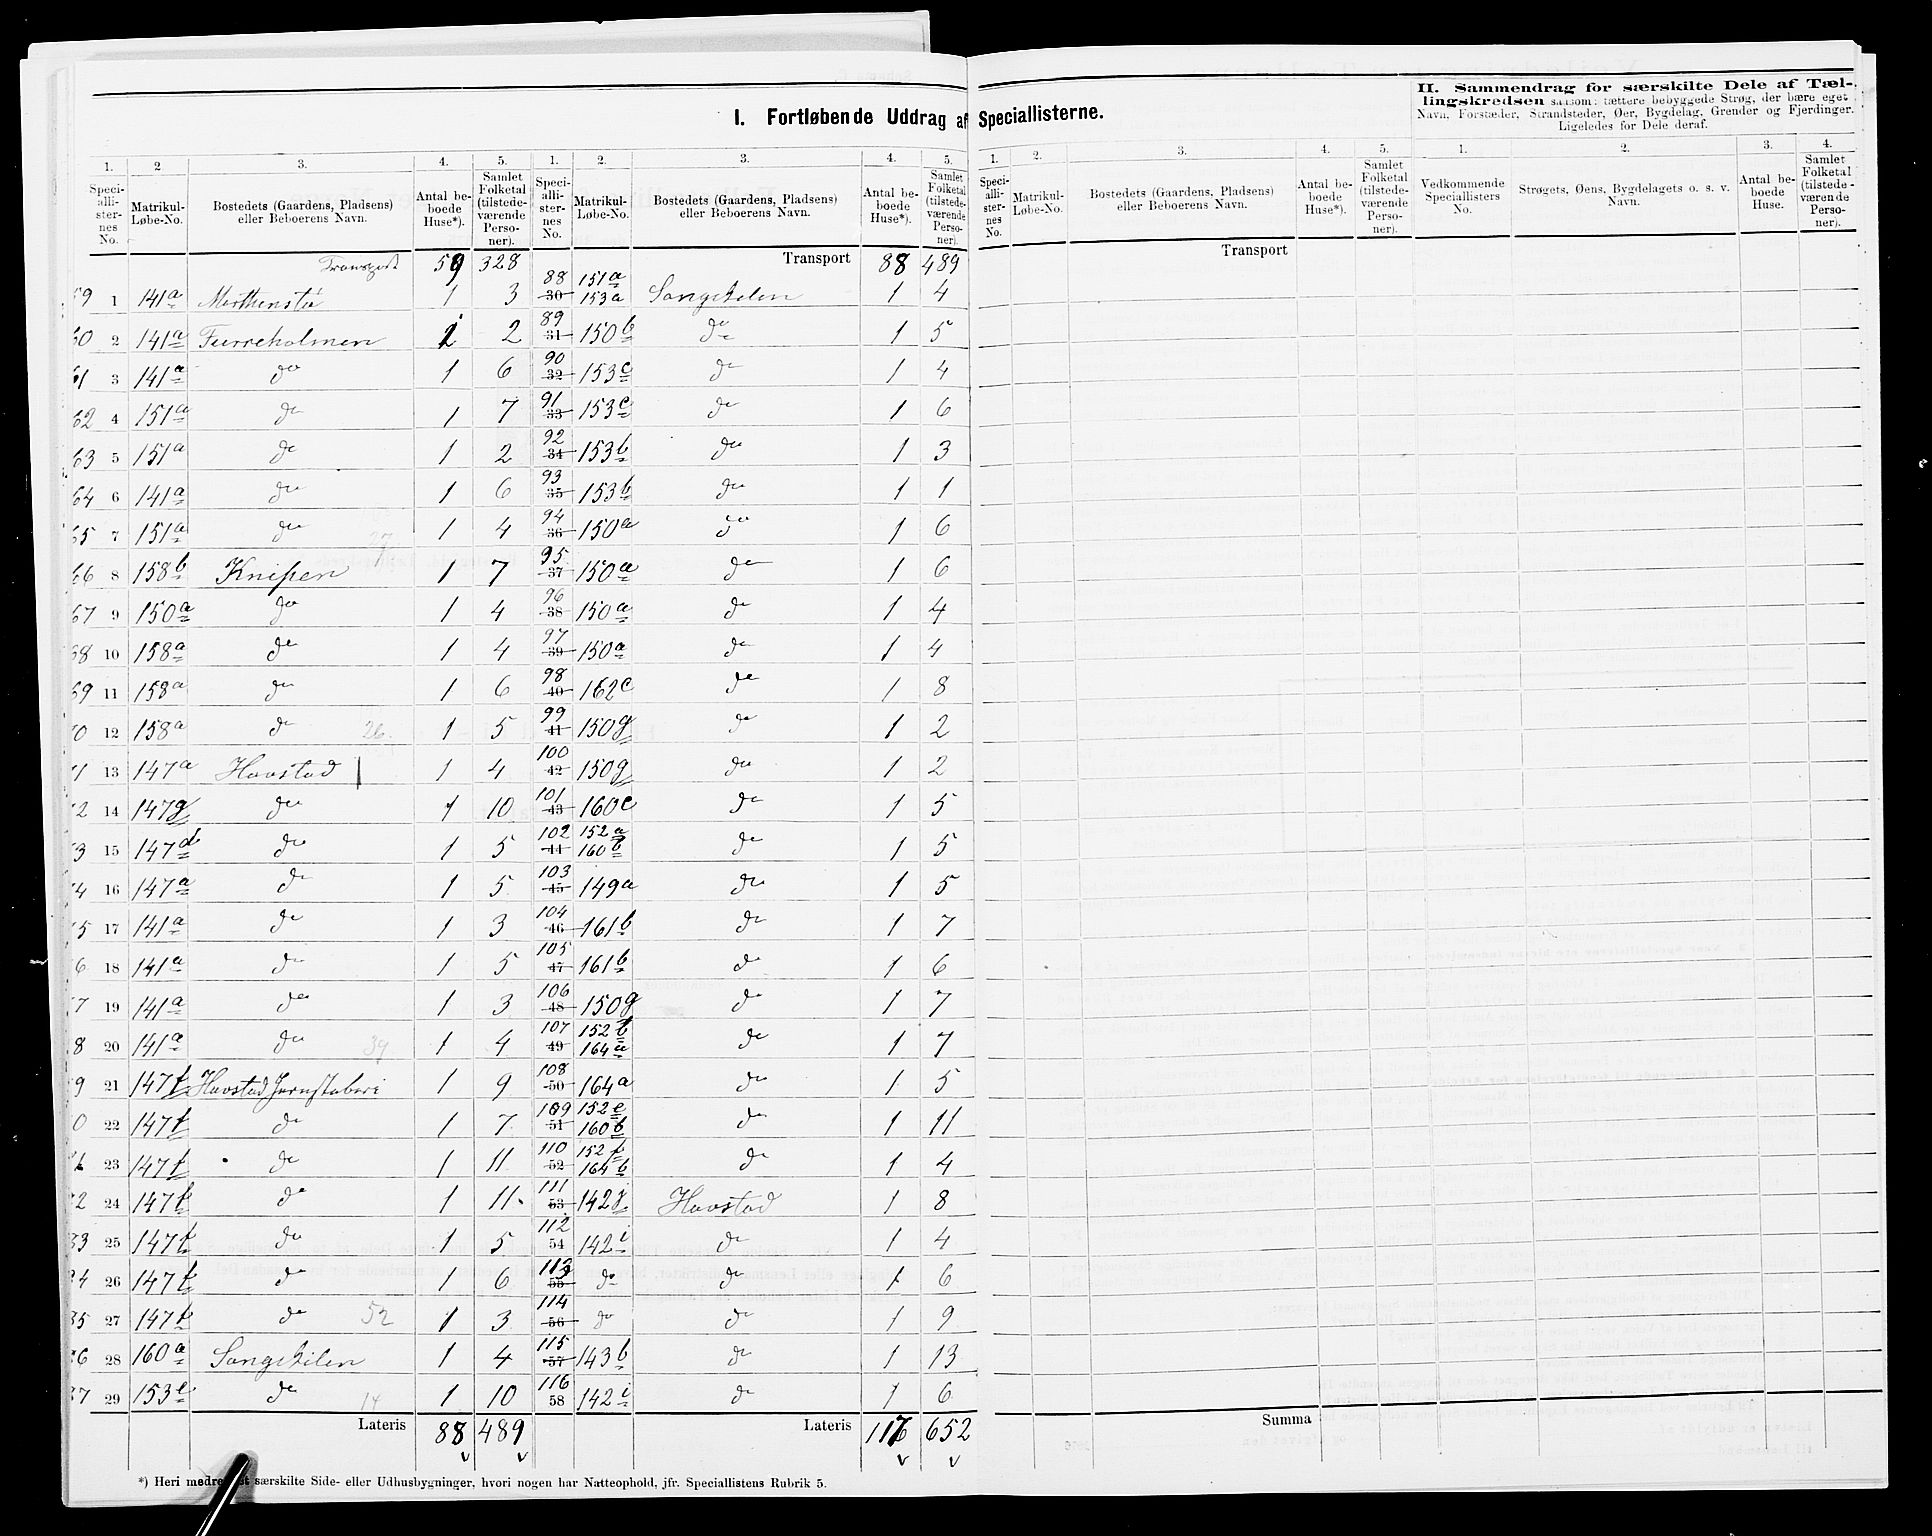 I. Fortløbende Uddrag af Speciallisterne.
II. Sammendrag for særskilte Dele af Tæl-
lingskredsen saasom: tættere bebyggede Strøg, der bære eget
Navn, Forstæder, Strandsteder, Øer, Bygdelag, Grender og Fjerdinger.
Ligeledes for Dele deraf.
1. 2 3. 4. 5. 1. 2. 3. 4. 5.
Speciallisternes No. Matrikul-Løbe-No. Bostedets (Gaardens, Pladsens) eller Beboerens Navn. Antal beboede Huse*). Samlet Folketal (tilstedeværende Personer). Speciallisternes No. Matrikul-Løbe-No. Bostedets (Gaardens, Pladsens) eller Beboerens Navn. Antal beboede Huse*). Samlet Folketal (tilstedeværende Personer).
Transport 59 328 Transport 88 489
59 1 141a Merthenstø 1 3 88 30 151a 153a Songekilen 1 4
60 2 141a Furreholmen 1 2 89 31 150b do 1 5
61 3 141a do 1 6 90 32 153c do 1 4
62 4 151a do 1 7 91 33 153c do 1 6
63 5 151a do 1 2 92 34 153b do 1 3
64 6 141a do 1 6 93 35 153b do 1 1
65 7 151a do 27 1 4 94 36 150a do 1 6
66 8 158b Knipen 1 7 95 37 150a do 1 6
67 9 150a do 1 4 96 38 150a do 1 4
68 10 158a do 1 4 97 39 150a do 1 4
69 11 158a do 1 6 98 40 162c do 1 8
0 12 158a do 26. 1 5 99 41 150g do 1 2
1 13 147a Havstad 1 4 100 42 150g do 1 2
2 14 147g do 1 10 101 43 160c do 1 5
3 15 147d do 1 5 102 44 152a 160b do 1 5
4 16 147a do 1 5 103 45 149a do 1 5
5 17 141a do 1 3 104 46 161b do 1 7
6 18 141a do 1 5 105 47 161b do 1 6
7 19 141a do 1 3 106 48 150g do 1 7
8 20 141a do 39 1 4 107 49 152b 164a do 1 7
9 21 147f Havstad Jernstøberi 1 9 108 50 164a do 1 5
0 22 147f do 1 7 109 51 152e 160b do 1 11
1 23 147f do 1 11 110 52 152f 164b do 1 4
2 24 147f do 1 11 111 53 142i Havstad 1 8
33 25 147f do 1 5 112 54 142i do 1 4
4 26 147f do 1 6 113 55 do do 1 6
35 27 147f do 52 1 3 114 56 do do 1 9
6 28 160a Songekilen 1 4 115 57 143b do 1 13
37 29 153e do 14 1 10 116 58 142i do 1 6
Lateris 88 489 Lateris 116 652
*) Heri medre særskilte Side- eller Udhusbygninger, hvori nogen har Natteophold, jfr. Speciallistens Rubrik 5.
1. 2. 3. 4. 5. 1. 2. 3. 4.
Speciallisternes No. Matrikul-Løbe-No. Bostedets (Gaardens, Pladsens) eller Beboerens Navn. Antal beboede Huse*). Samlet Folketal (tilstedeværende Personer). Vedkommende Speciallisters No. Strøgets, Øens, Bygdelagets o. s. v. Navn. Antal beboede Huse. Samlet Folketal (tilstedeværende Personer).
Transport
Summa